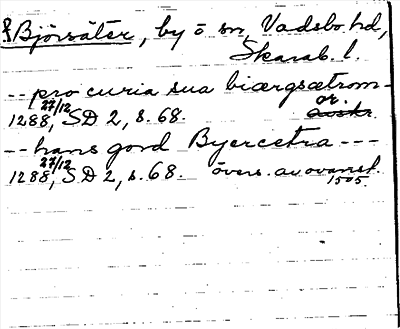 Björsäter, by ö sn, Vadsbo hd,
Skarab. l.
-- pro curia sua biærgsætrom -
1288 27/12, SD 2, s. 68. or.
avskr.
-- hans gord Byercetra ---
1288 27/12, SD 2, s. 68. övers. av ovanst.
1505.